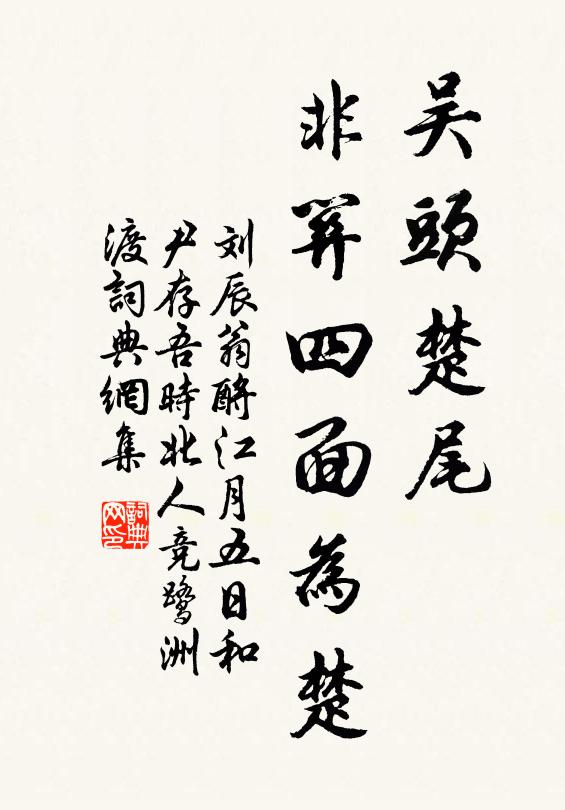 吳頭楚尾
非關四面為楚
刘辰翁酹江月五日和
尹存吾時北人竞鷺洲
渡詞典網集
詞典
网印